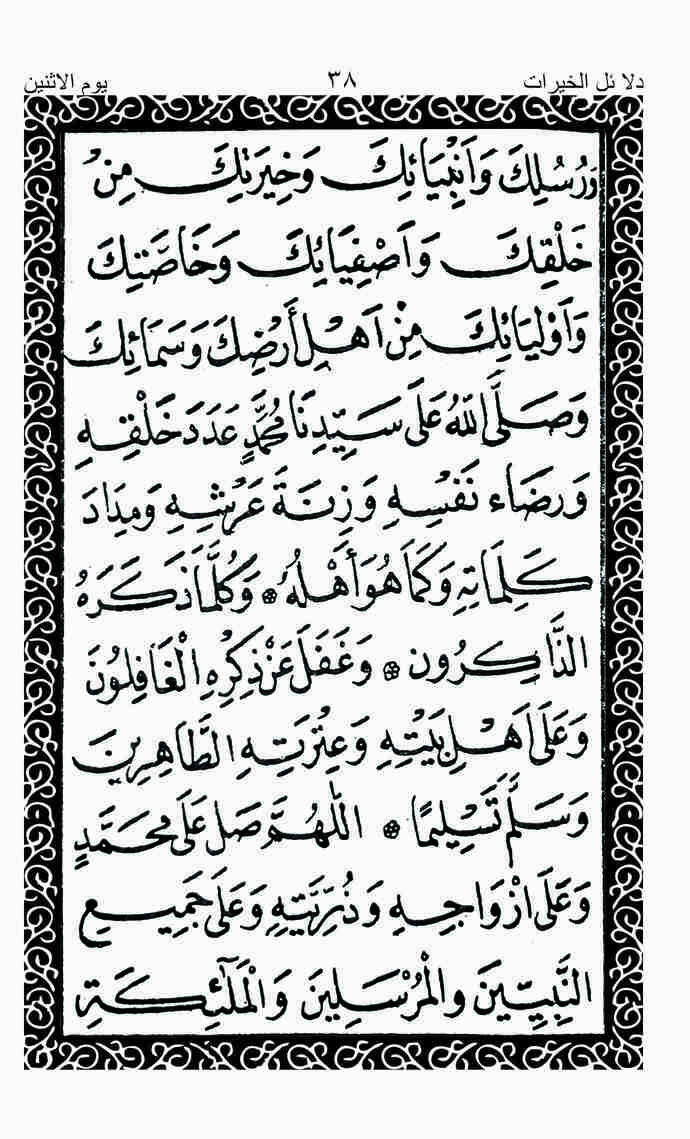 دلائل الخيرات ٣٨ يوم الاثنين
وَرُسُلِكَ وَاَنْبِيَائِكَ وَخِيَرَتِكَ مِنْ
خَلْقِكَ وَاَصْفِيَائِكَ وَخَاصَّتِكَ
وَاَوْلِيَائِكَ مِنْ اَهْلِ أَرْضِكَ وَسَمَائِكَ
وَصَلَّى اللّٰهُ عَلَى سَيِّدِنَا مُحَمَّدٍ عَدَدَ خَلْقِهِ
وَرِضَاءَ نَفْسِهِ وَزِنَةَ عَرْشِهِ وَمِدَادَ
كَلِمَاتِهِ وَكَمَا هُوَ أَهْلُهُ ۞ وَكُلَّمَا ذَكَرَهُ
الذَّاكِرُون ۞ وَغَفَلَ عَنْ ذِكْرِهِ الْغَافِلُونَ
وَعَلَى اَهْلِ بَيْتِهِ وَعِتْرَتِهِ الطَّاهِرِينَ
وَسَلَّمَ تَسْلِيمًا ۞ اَللّٰهُمَّ صَلِ عَلَى مُحَمَّدٍ
وَعَلَى اَزْوَاجِهِ وَذُرِّيَّتِهِ وَعَلَى جَمِيعِ
النَّبِيِّينَ والْمُرْسَلِينَ وَالْمَلٰٓئِكَةِ